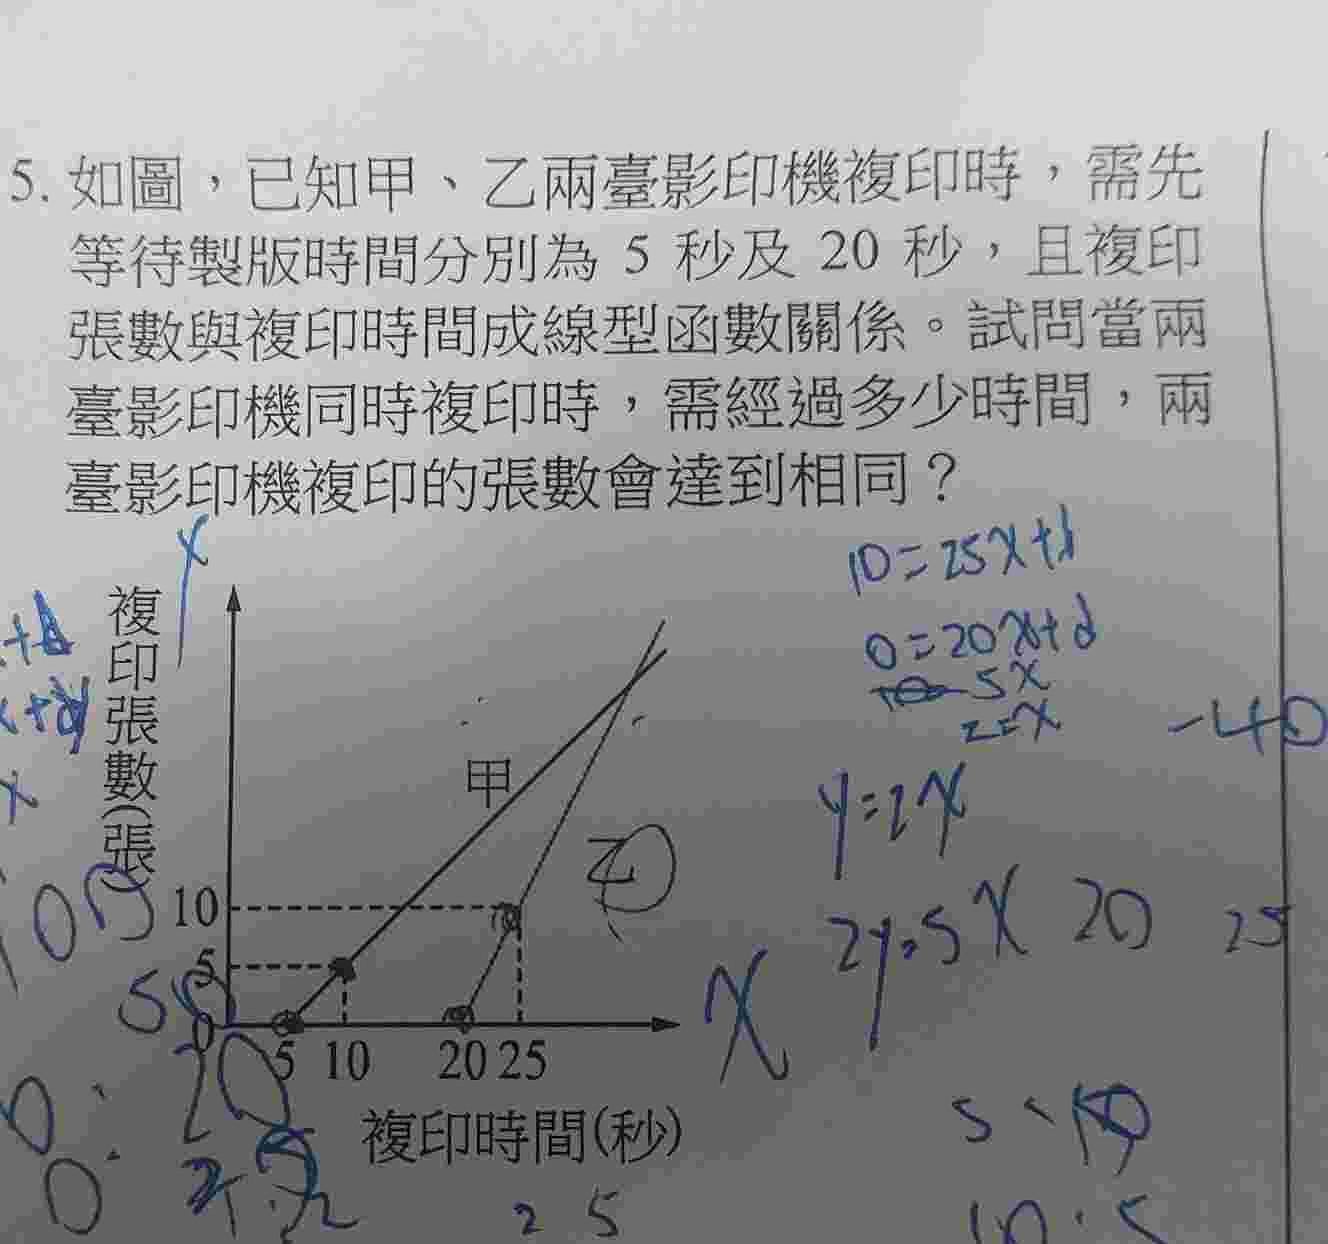 5. 如圖，已知甲、乙兩臺影印機複印時，需先
等待製版時間分別為 5 秒及 20 秒，且複印
張數與複印時間成線型函數關係。試問當兩
臺影印機同時複印時，需經過多少時間，兩
臺影印機複印的張數會達到相同？
10=25x+d
0=20x+d
5x
2=x
-40
y=2x
2y=5x 20 25
複印張數(張)
甲
乙
10
5
0
5 10 20 25
x
複印時間(秒)
2 5